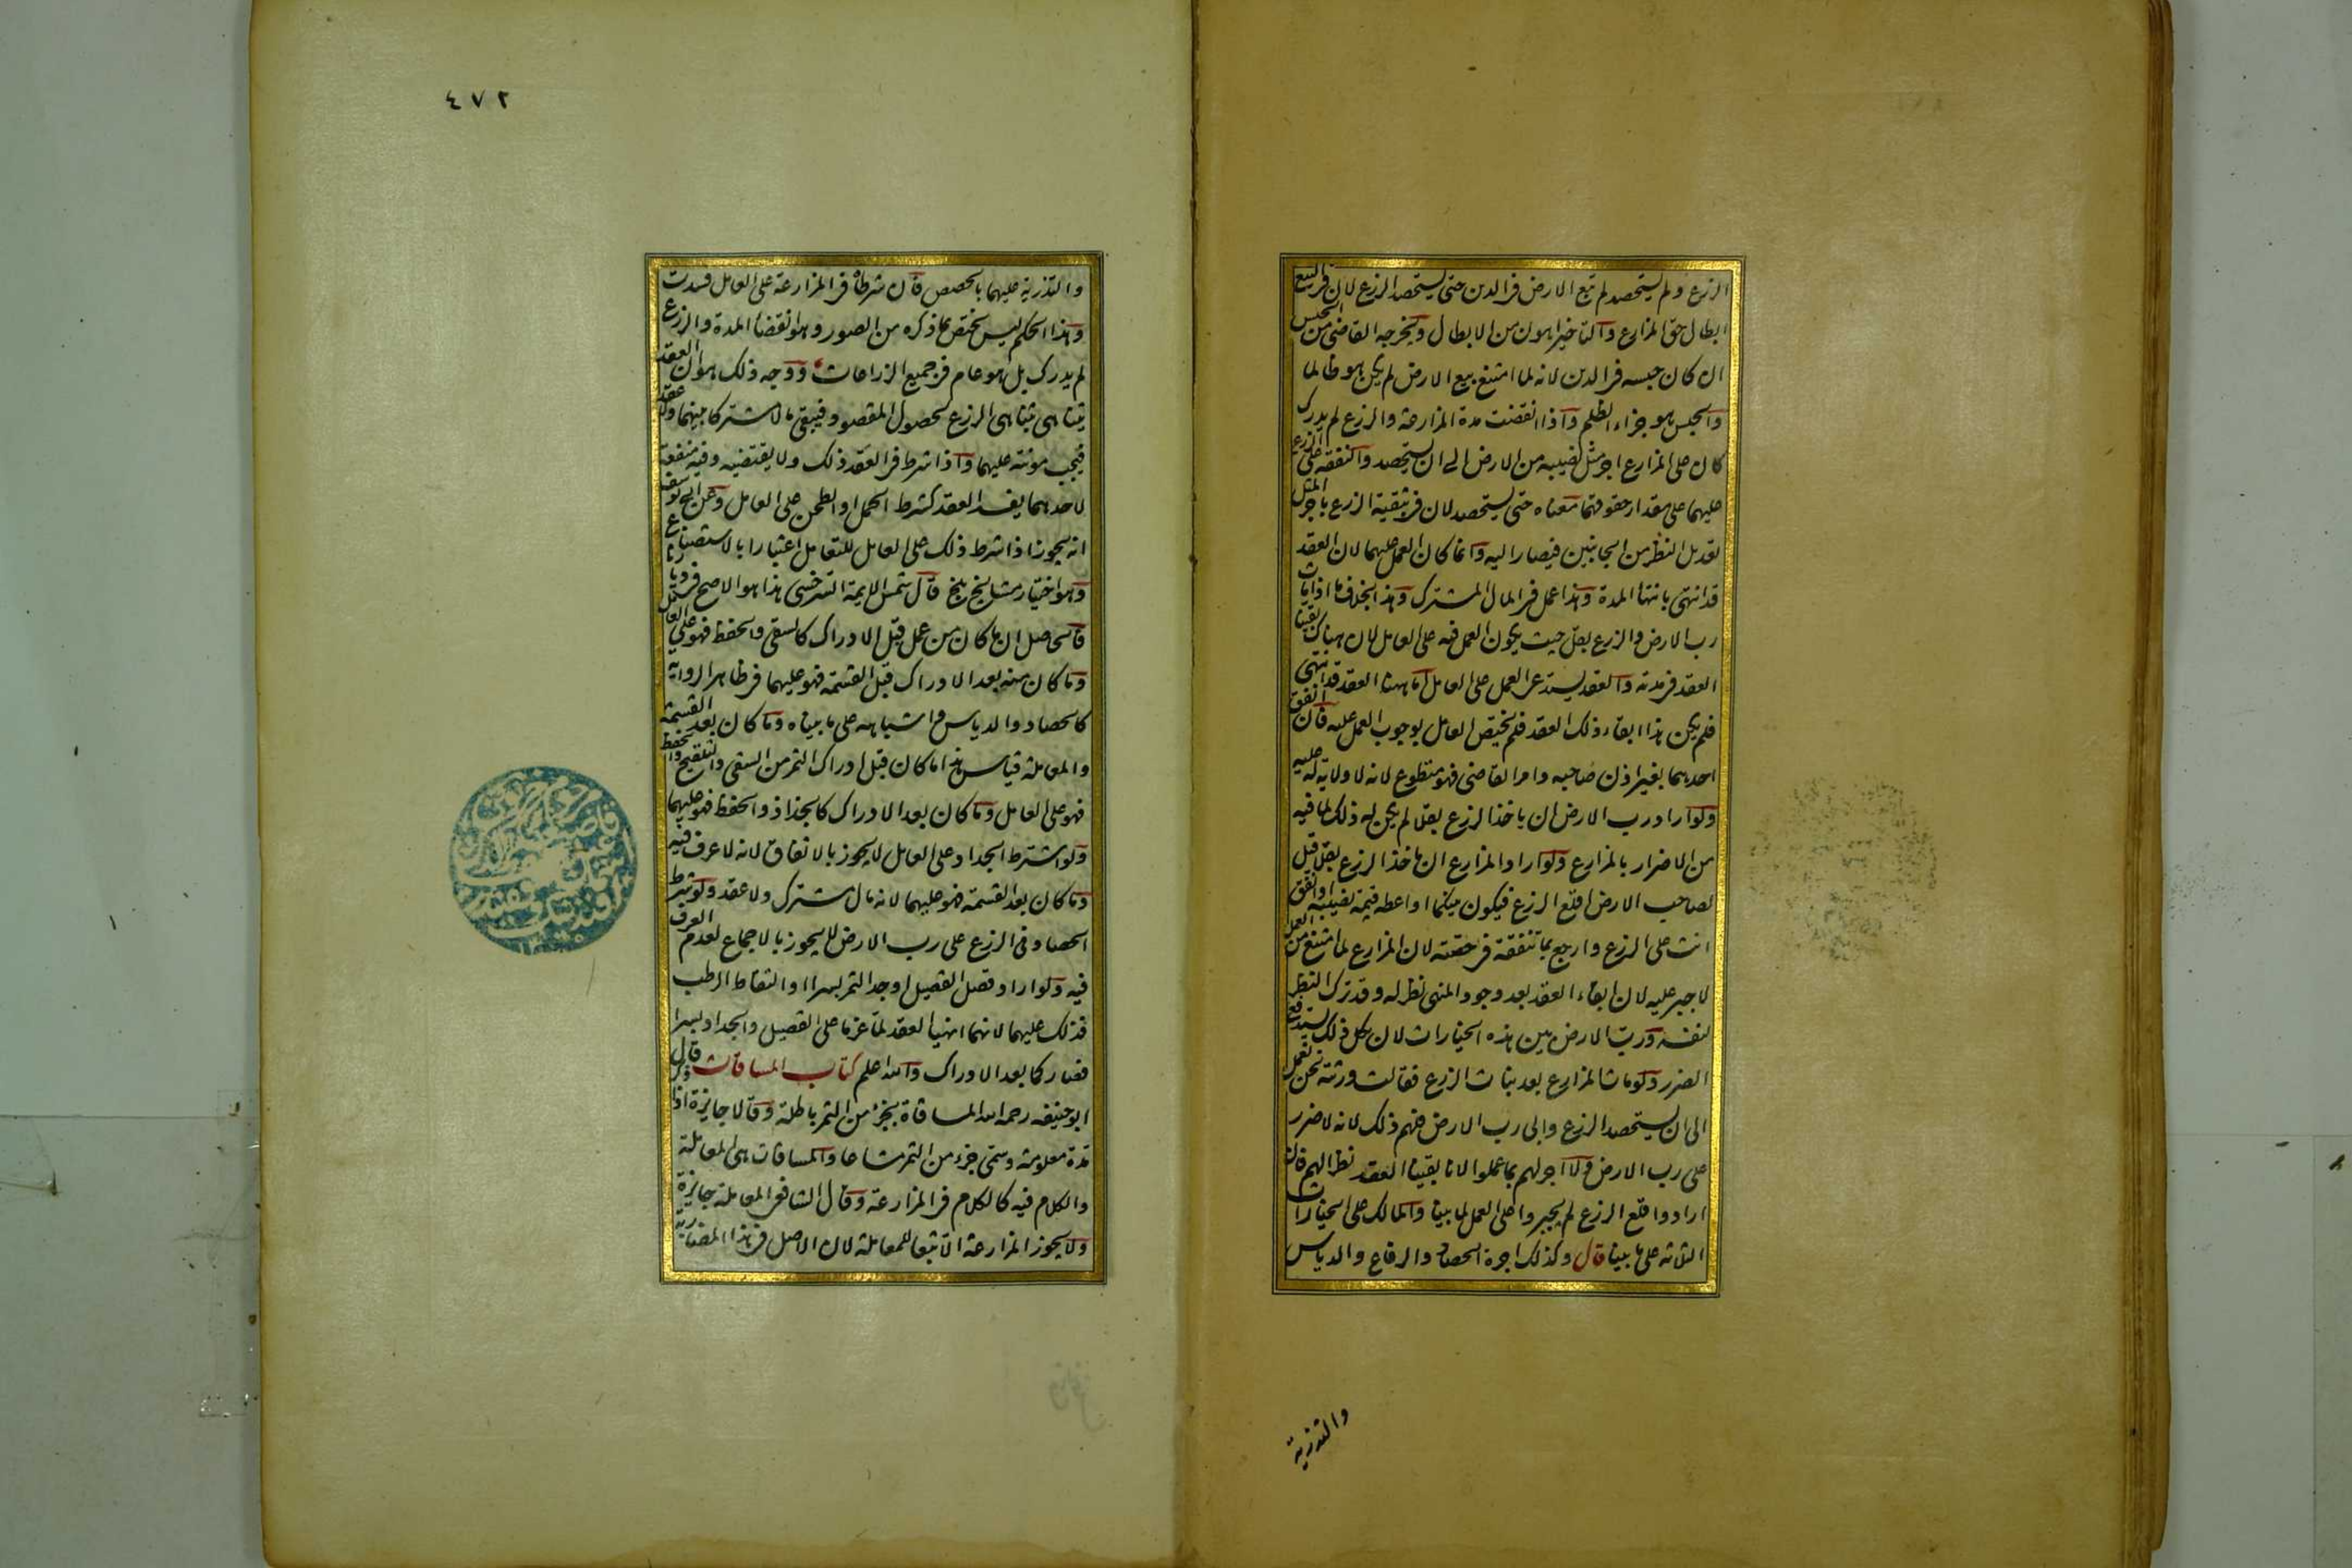 الزرع ولم يستحصد لم تبع الارض في الدين حتى يستحصد الزرع لان في البيع
ابطال حق المزارع والتاخير اهون من الابطال ويخرجه القاضي من الحبس
ان كان حبسه في الدين لانه لما امتنع بيع الارض لم يكن هو ظالما
والحبس هو جزاء الظلم واذا انقضت مدة المزارعة والزرع لم يدرك
كان على المزارع اجر مثل نصيبه من الارض الى ان يستحصد والنفقة على الزرع
عليهما على مقدار حقوقهما معناه حتى يستحصد لان في تبقية الزرع باجر المثل
تعديل النظر من الجانبين فيصار اليه وانما كان العمل عليهما لان العقد
قد انتهى بانتهاء المدة وهذا عمل في المال المشترك وهذا بخلاف ما اذا مات
رب الارض والزرع بقل حيث يكون العمل فيه على العامل لان هناك بقينا
العقد في مدته والعقد يستدعى العمل على العامل اما ههنا العقد قد انتهى
فلم يكن هذا ابقاء ذلك العقد فلم يختص العامل بوجوب العمل عليه فان انفق
احدهما بغير اذن صاحبه وامر القاضي فهو متطوع لانه لا ولاية له عليه
ولو اراد رب الارض ان ياخذ الزرع بقلا لم يكن له ذلك لما فيه
من الاضرار بالمزارع ولو اراد المزارع ان ياخذ الزرع بقلا قيل
لصاحب الارض اقلع الزرع فيكون بينكما او اعطه قيمة نصيبه او انفق
انت على الزرع وارجع بما تنفقه في حصته لان المزارع لما امتنع من العمل
لا جبر عليه لان ابقاء العقد بعد وجود المنهى نظر له وقد ترك النظر
لنفسه ورب الارض بين هذه الخيارات لان بكل ذلك يستدفع
الضرر ولو مات المزارع بعد نبات الزرع فقالت ورثته نحن نعمل
الى ان يستحصد الزرع وابى رب الارض فلهم ذلك لانه لا ضرر
على رب الارض ولا اجر لهم بما عملوا لانا بقينا العقد نظرا لهم فان
ارادوا قلع الزرع لم يجبروا على العمل لما بينا والمالك على الخيارات
الثلاثة على ما بينا قال وكذلك اجرة الحصاد والرفاع والدياس
والتذرية
٤٧٢
والتذرية عليهما بالحصص فان شرطاه في المزارعة على العامل فسدت
وهذا الحكم ليس يختص بما ذكره من الصور وهو انقضاء المدة والزرع
لم يدرك بل هو عام في جميع الزراعات ووجه ذلك هو ان العقد
يتناهى بتناهى الزرع لحصول المقصود فيبقى مالا مشتركا بينهما ولا عقد
فيجب مونته عليهما واذا شرط في العقد ذلك ولا يقتضيه وفيه منفعة
لاحدهما يفسد العقد كشرط الحمل او الطحن على العامل وعن ابي يوسف
انه يجوز اذا شرط ذلك على العامل للتعامل اعتبارا بالاستصناع
وهو اختيار مشايخ بلخ قال شمس الايمة السرخسي هذا هو الاصح في ديارنا
فالحاصل ان ما كان من عمل قبل الادراك كالسقي والحفظ فهو على العامل
وما كان منه بعد الادراك قبل القسمة فهو عليهما في ظاهر الرواية
كالحصاد والدياس واشباهه على ما بيناه وما كان بعد القسمة
والمعاملة قياس هذا ما كان قبل ادراك الثمر من السقي والتلقيح والحفظ
فهو على العامل وما كان بعد الادراك كالجذاذ والحفظ فهو عليهما
ولو اشترط الجداد على العامل لا يجوز بالاتفاق لانه لا عرف فيه
وما كان بعد القسمة فهو عليهما لانه مال مشترك ولا عقد ولو شرط
الحصاد في الزرع على رب الارض لا يجوز بالاجماع لعدم العرف
فيه ولو ارادا قصل القصيل او جد الثمر بسرا او التقاط الرطب
فذلك عليهما لانهما انهيا العقد لما عزما على القصيل والجداد بسرا
فصار كما بعد الادراك والله اعلم كتاب المساقات قال
ابو حنيفه رحمه الله المساقاة بجزء من الثمر باطلة وقالا جايزة اذا ذكر
مدة معلومة وسمى جزء من الثمر مشاعا والمساقات هى المعاملة
والكلام فيه كالكلام في المزارعة وقال الشافعي المعاملة جايزة
ولا يجوز المزارعة الا تبعا للمعاملة لان الاصل في هذا المضاربة